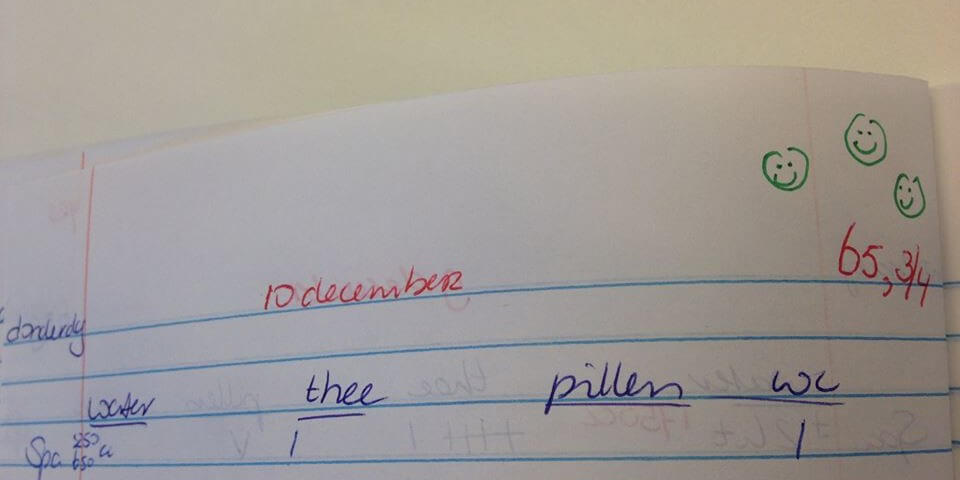 65, 3/4
10 december
donderdg
water thee pillen wc
Spa 250 1 1
650